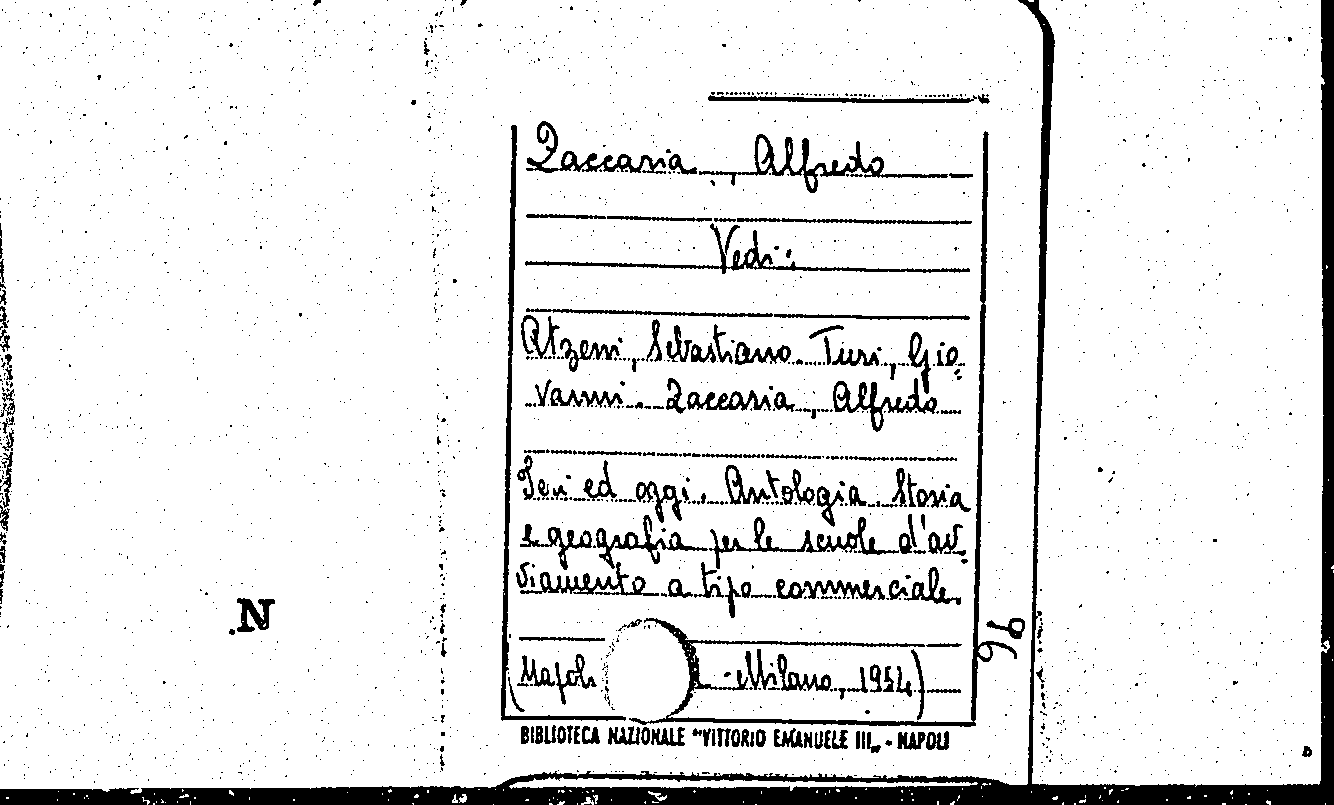 Zaccaria, Alfredo
Vedi:
Atzeni, Sebastiano. Turi, Gio=
vanni. Zaccaria, Alfredo
Ieri ed oggi. Antologia. Storia
e geografia per le scuole d'av=
viamento a tipo commerciale.
(Napoli - Milano, 1954)
BIBLIOTECA NAZIONALE "VITTORIO EMANUELE III„ - NAPOLI
N
96